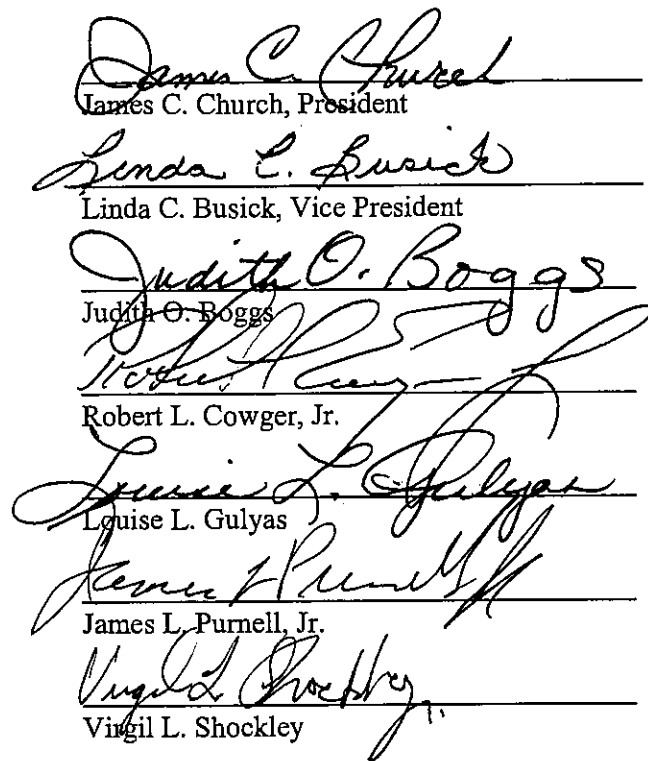 James C. Church
James C. Church, President
Linda C. Busick
Linda C. Busick, Vice President
Judith O. Boggs
Judith O. Boggs
Robert L. Cowger, Jr.
Louise L. Gulyas
Louise L. Gulyas
James L. Purnell, Jr.
James L. Purnell, Jr.
Virgil L. Shockley
Virgil L. Shockley